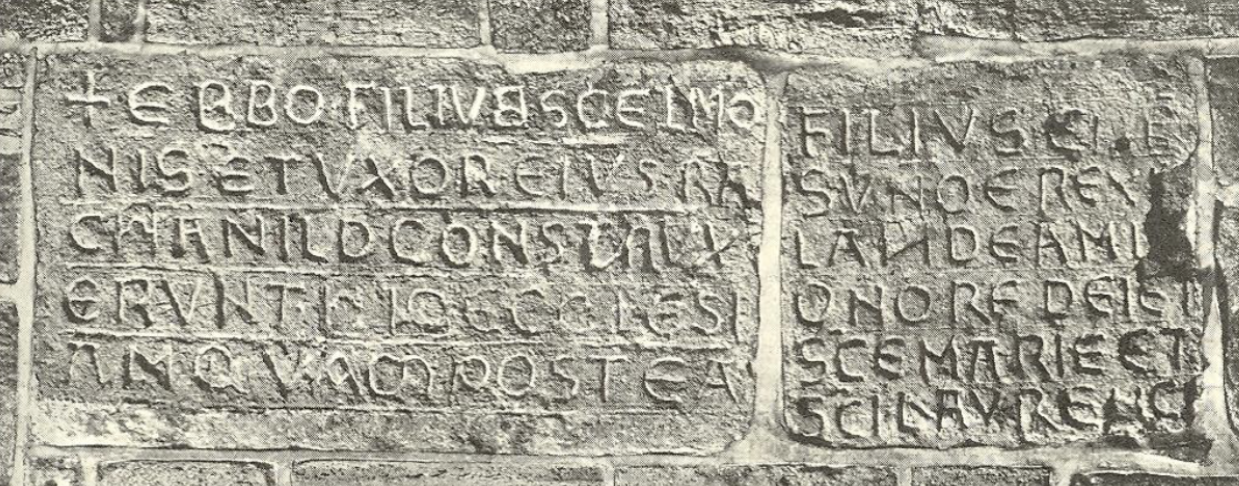 + EBBO·FILIVS SCELMO
NIS ET VXOR EIVS RA
CHANILD CONSTRVX
ERVNT ECCLESI
AM QVAM POSTEA
FILIVS
SVNO E REX
LANDEAM I
ONORE DEI ET
SCE MARIE ET
SCI LAVRENC